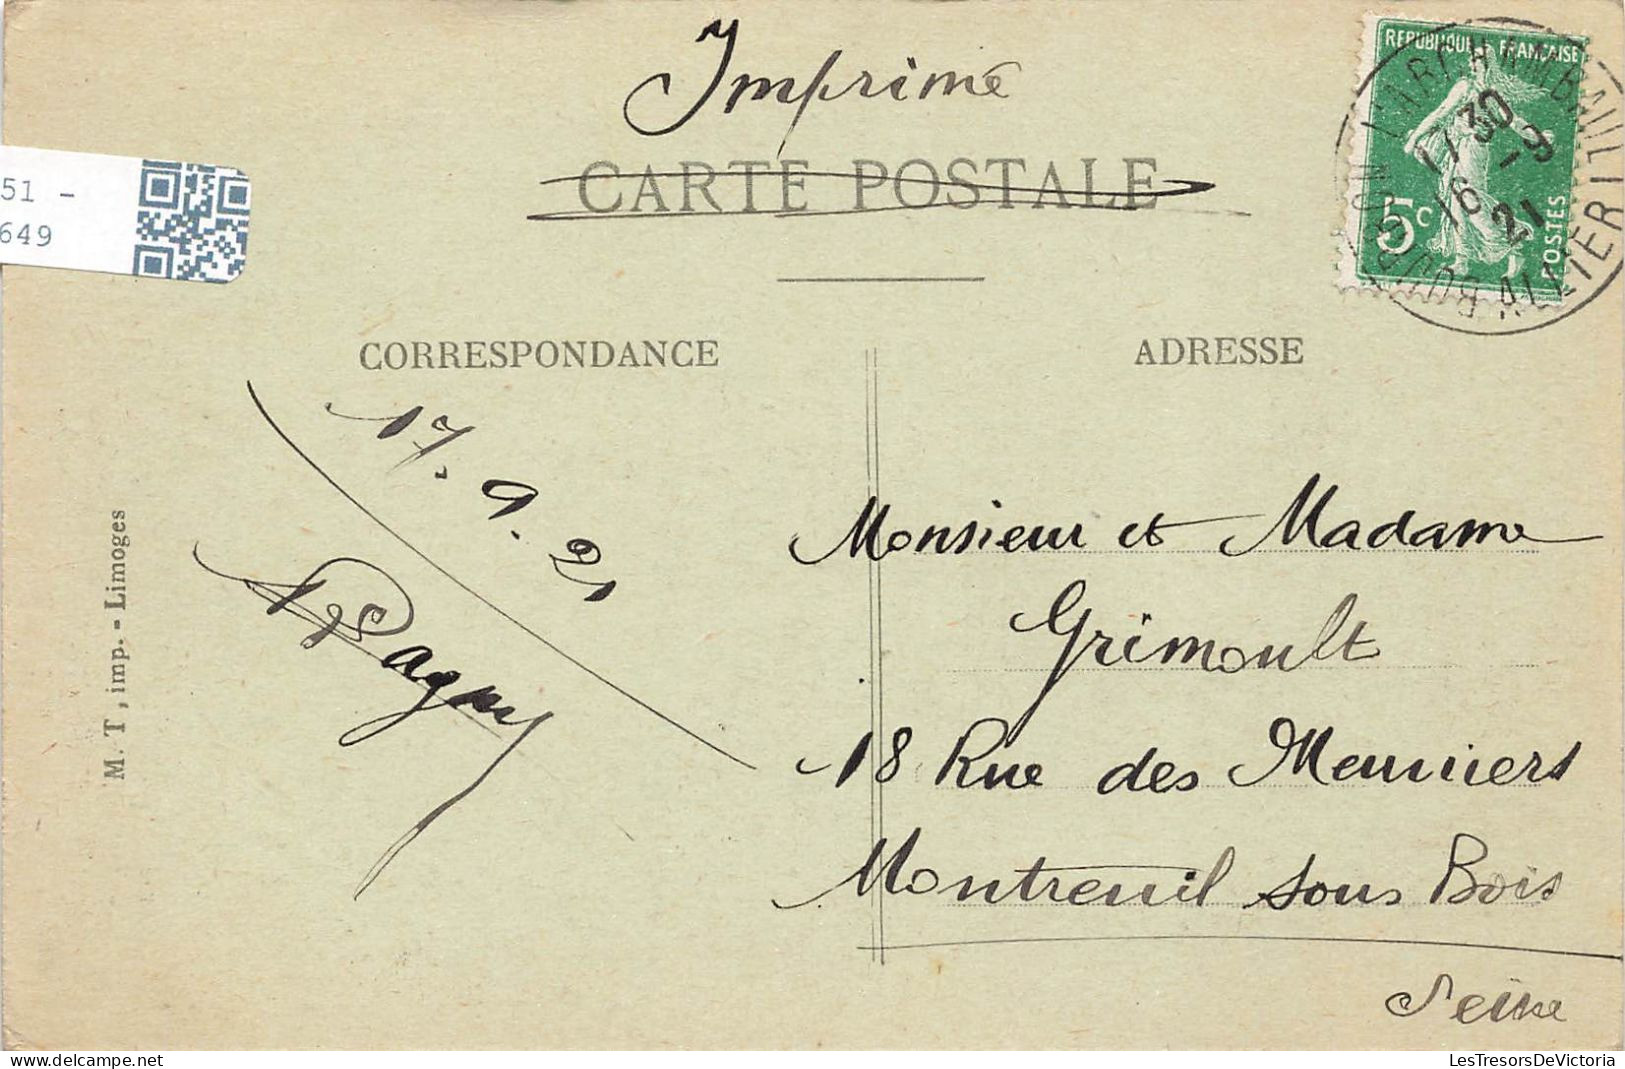 Imprimé
CARTE POSTALE
51 -
649
REPUBLIQUE FRANÇAISE
5c
POSTES
BOURBON L'ARCHAMBAULT
17 30
16 - 9
21
ALLIER
CORRESPONDANCE
ADRESSE
17. 9. 21
Pagny
Monsieur et Madame
Grimoult
18 Rue des Meuniers
Montreuil sous Bois
Seine
M. T, imp. - Limoges
LesTresorsDeVictoria